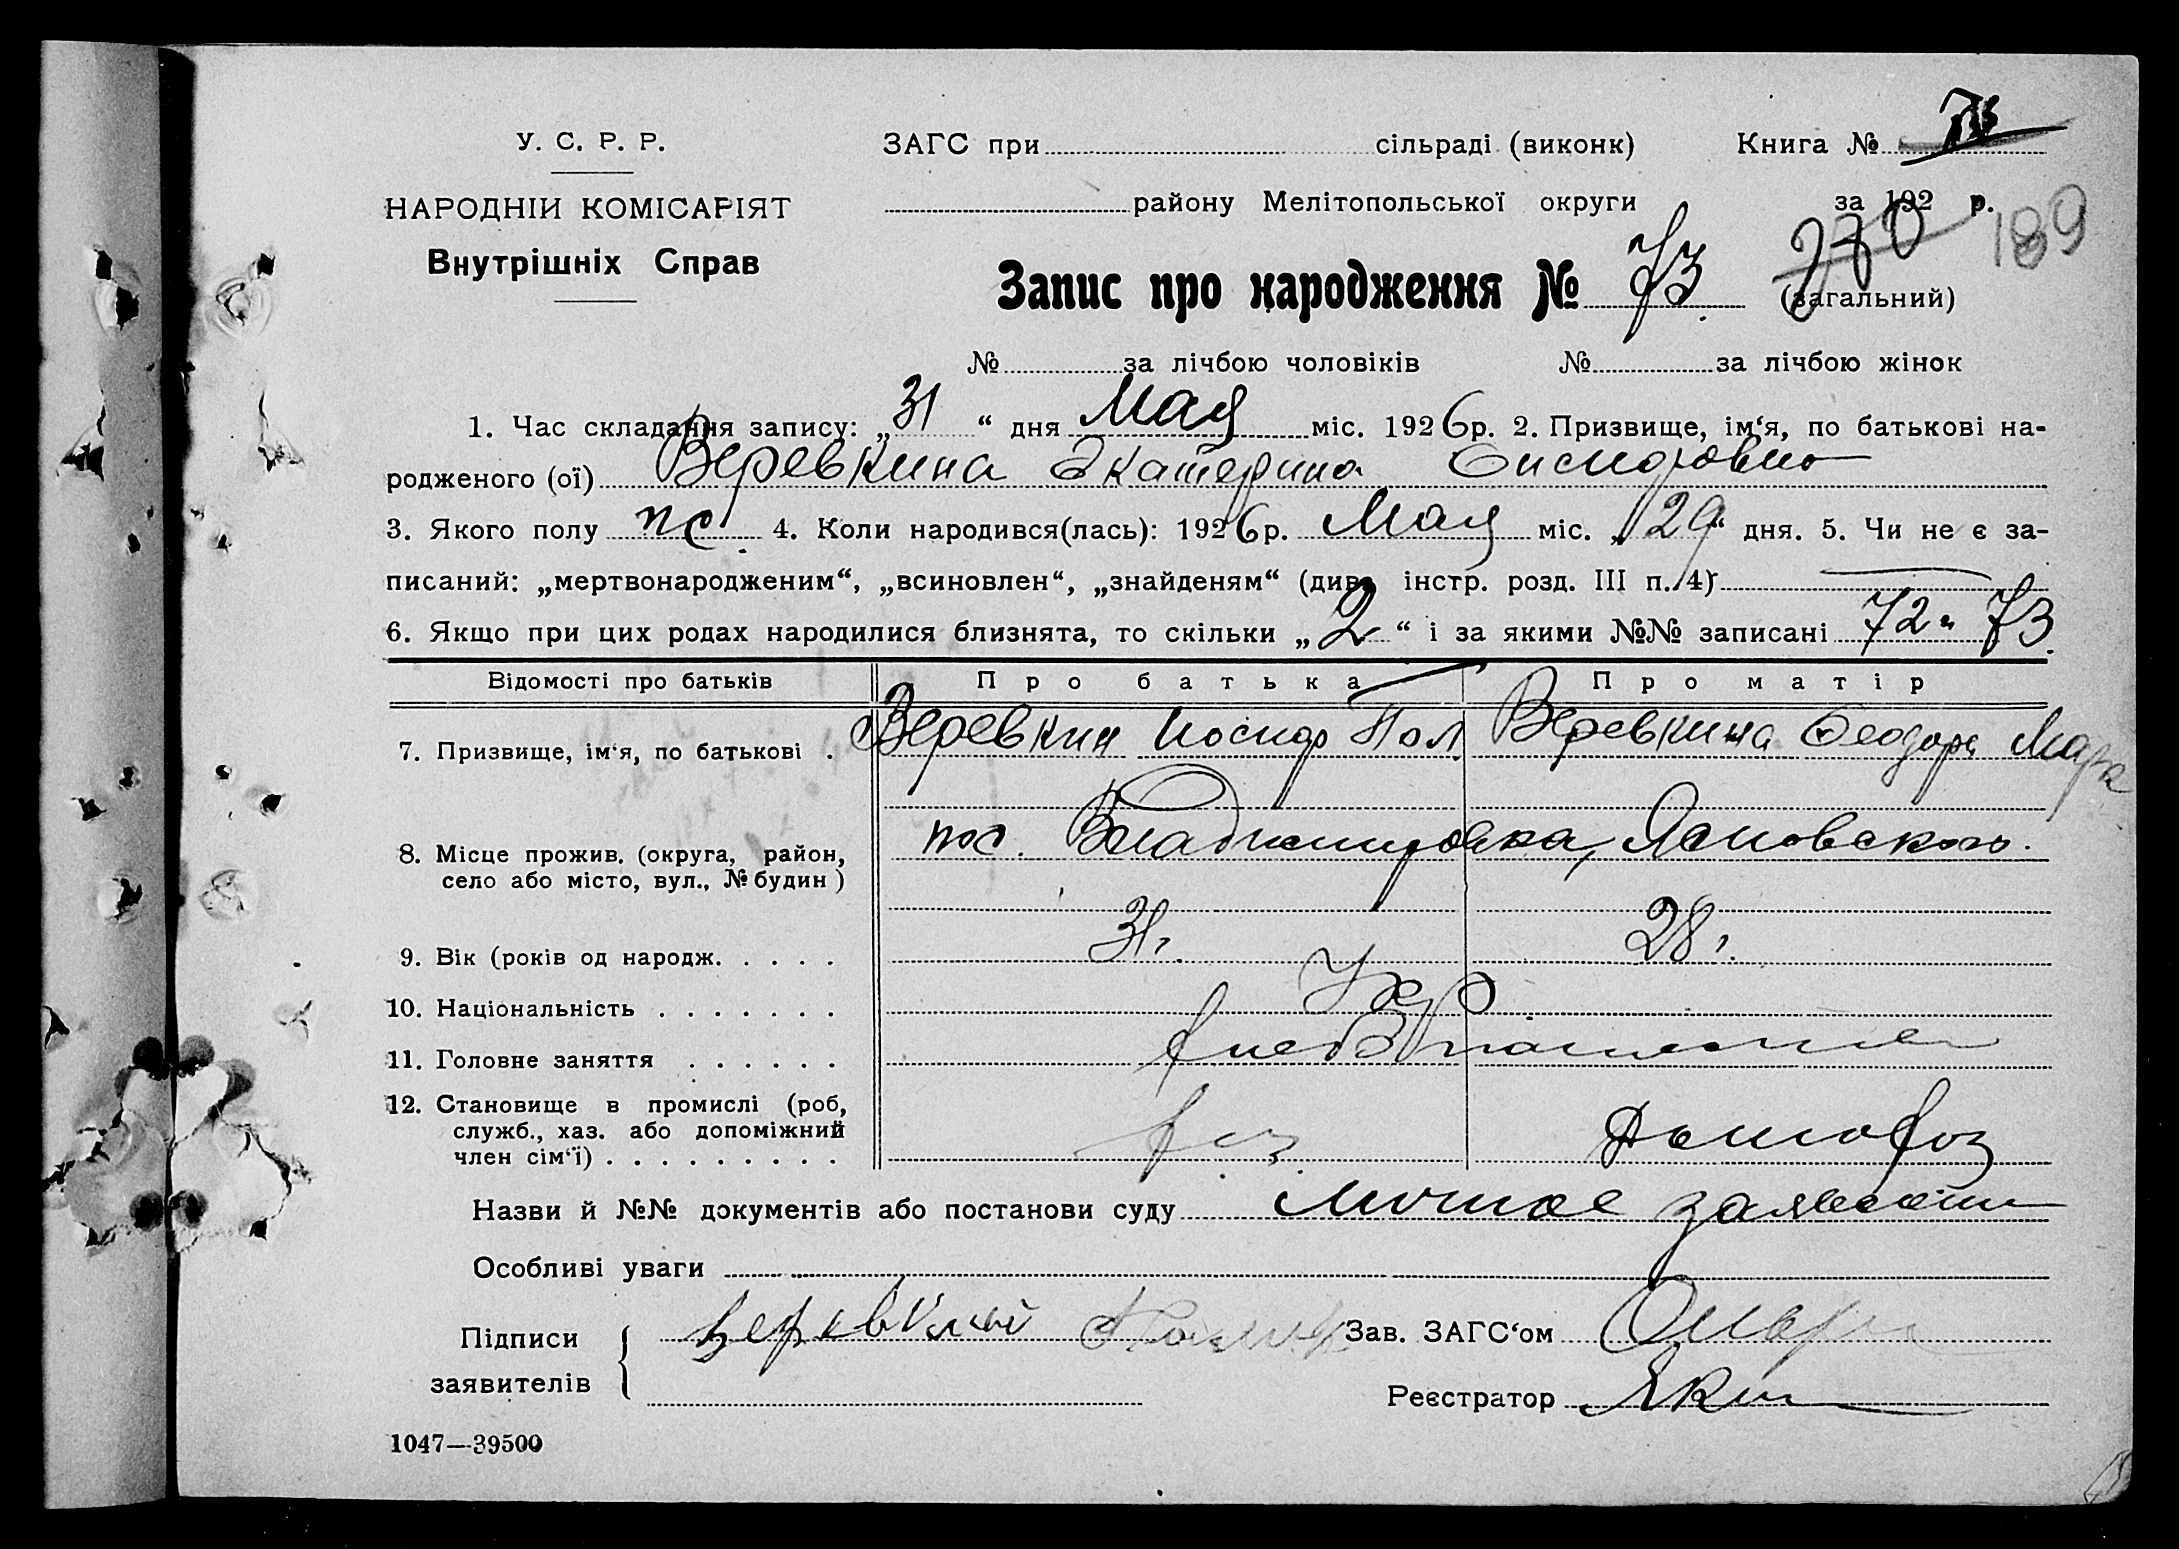 У. С. Р. Р.
НАРОДНІЙ КОМІСАРІЯТ
Внутрішніх Справ
ЗАГС при сільраді (виконк) Книга №
району Мелітопольської округи за 192 р. 189
Запис про народження № 73 270 (загальний)
№ за лічбою чоловіків № за лічбою жінок
1. Час складання запису: „31“ дня Мая міс. 1926 р. 2. Призвище, ім‘я, по батькові на-
родженого (ої) Веревкина Екатерина
3. Якого полу 4. Коли народився(лась): 1926 р. Мая міс. „29“ дня. 5. Чи не є за-
писаний: „мертвонародженим“, „всиновлен“, „знайденям“ (див. інстр. розд. III п. 4)
6. Якщо при цих родах народилися близнята, то скільки „2“ і за якими №№ записані 72 и 73.
Відомості про батьків Про батька Про матір
7. Призвище, ім‘я, по батькові . Веревкин Пол Веревкина Феодора Марк
8. Місце прожив. (округа, район, пос. Владимировка,
село або місто, вул., № будин)
9. Вік (років од народж. . . . . 31 г. 28 г.
10. Національність . . . . . . . Укр
11. Головне заняття . . . . . . хлебопашение
12. Становище в промислі (роб, хоз. Домохоз
служб., хаз. або допоміжний
член сім‘ї) . . . . . . . . .
Назви й №№ документів або постанови суду личное заявление
Особливі уваги
Підписи Зав. ЗАГС‘ом
заявителів Реєстратор
1047—39500